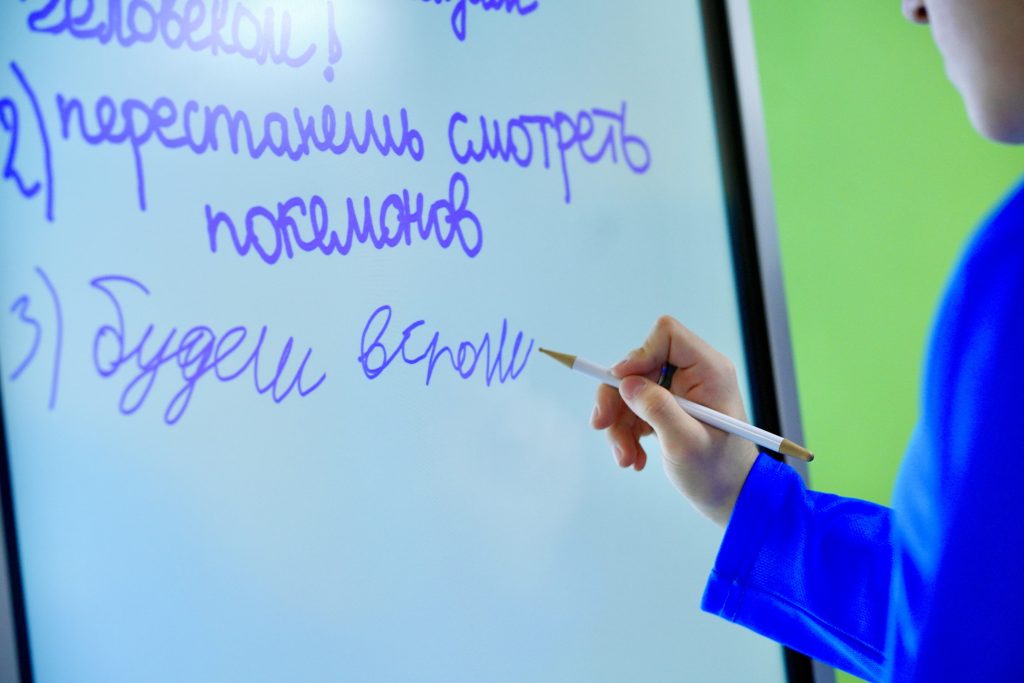 человеком!
2) перестанешь смотреть
покемонов
3) будеш